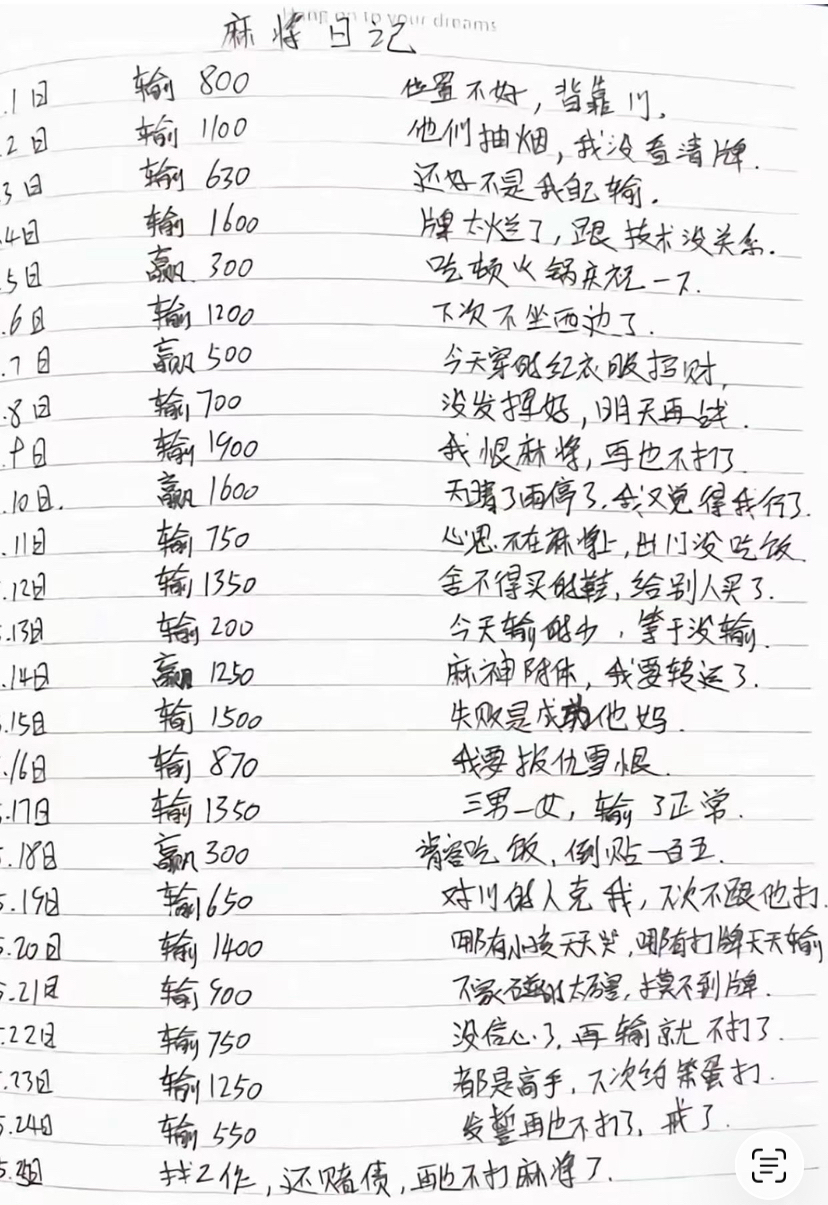 Hang on to your dreams
麻将日记
.1日 输 800 位置不好，背靠门.
.2日 输 1100 他们抽烟，我没看清牌.
3日 输 630 还好不是我自己输.
.4日 输 1600 牌太烂了，跟技术没关系.
.5日 赢 300 吃顿火锅庆祝一下.
.6日 输 1200 下次不坐西边了.
.7日 赢 500 今天穿的红衣服招财,
.8日 输 700 没发挥好，明天再战.
.9日 输 1900 我恨麻将，再也不打了.
.10日. 赢 1600 天晴了雨停了.我又觉得我行了.
.11日 输 750 心思不在麻将上，出门没吃饭
.12日 输 1350 舍不得买的鞋，给别人买了.
.13日 输 200 今天输的少，等于没输.
.14日 赢 1250 麻神附体，我要转运了.
.15日 输 1500 失败是成功他妈.
.16日 输 870 我要报仇雪恨.
.17日 输 1350 三男一女，输了正常.
.18日 赢 300 请客吃饭，倒贴一百五.
5.19日 输 1650 对门的人克我，下次不跟他打.
5.20日 输 1400 哪有小孩天天哭，哪有打牌天天输
5.21日 输 900 下家碰的太厉害，摸不到牌.
.22日 输 750 没信心了，再输就不打了.
.23日 输 1250 都是高手，下次约笨蛋打.
5.24日 输 550 发誓再也不打了，戒了.
5. 日 找工作，还赌债，再也不打麻将了.